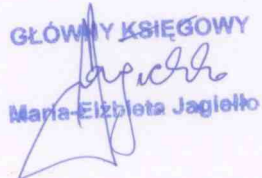 GŁÓWNY KSIĘGOWY
Maria-Elżbieta Jagiełło